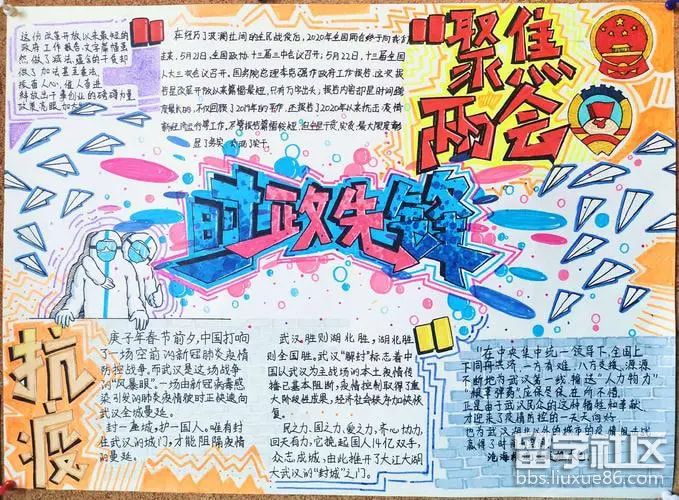 这份改革开放以来最短的
政府工作报告,文字篇幅虽
然做了减法,蕴含的干货却
做了加法甚至乘法。
催人奋进
在经历了波澜壮阔的全民战疫后,2020年全国两会终于向我们
走来。5月21日,全国政协十三届三次会议召开;5月22日,十三届全国
人大三次会议召开。国务院总理李克强作政府工作报告。这次报
告是改革开放以来篇幅最短,只有万字出头;
不仅回顾了2019年的工作,还报告了2020年以来抗击疫情
“聚焦
两会
时政先锋
抗疫
庚子年春节前夕,中国打响
了一场空前的新冠肺炎疫情
防控战争。而武汉是这场战争
的“风暴眼”。一场由新冠病毒感
染引发的肺炎疫情彼时正快速向
武汉全城蔓延。
封一座城,护一国人。唯有封
住武汉的城门,才能阻隔疫情
的蔓延。
武汉胜则湖北胜,湖北胜
则全国胜。武汉“解封”标志着中
国以武汉为主战场的本土疫情传
播已基本阻断,疫情控制取得了重
大阶段性成果,经济社会秩序加快恢
复。
民之力,国之力,爱之力,齐心协力,
回天有力。它挽起国人14亿双手,
众志成城,由此推开了大江大湖
大武汉的“封城”之门。
“在中央集中统一领导下,全国上
下同舟共济,一方有难,八方支援,源源
不断地为武汉第一线输送“人力物力”
“粮草弹药”应保尽保,在所不惜。
正是由于武汉民众的这种牺牲和奉献,
才迎来了疫情防控的一天天向好,
留学社区
bbs.liuxue86.com